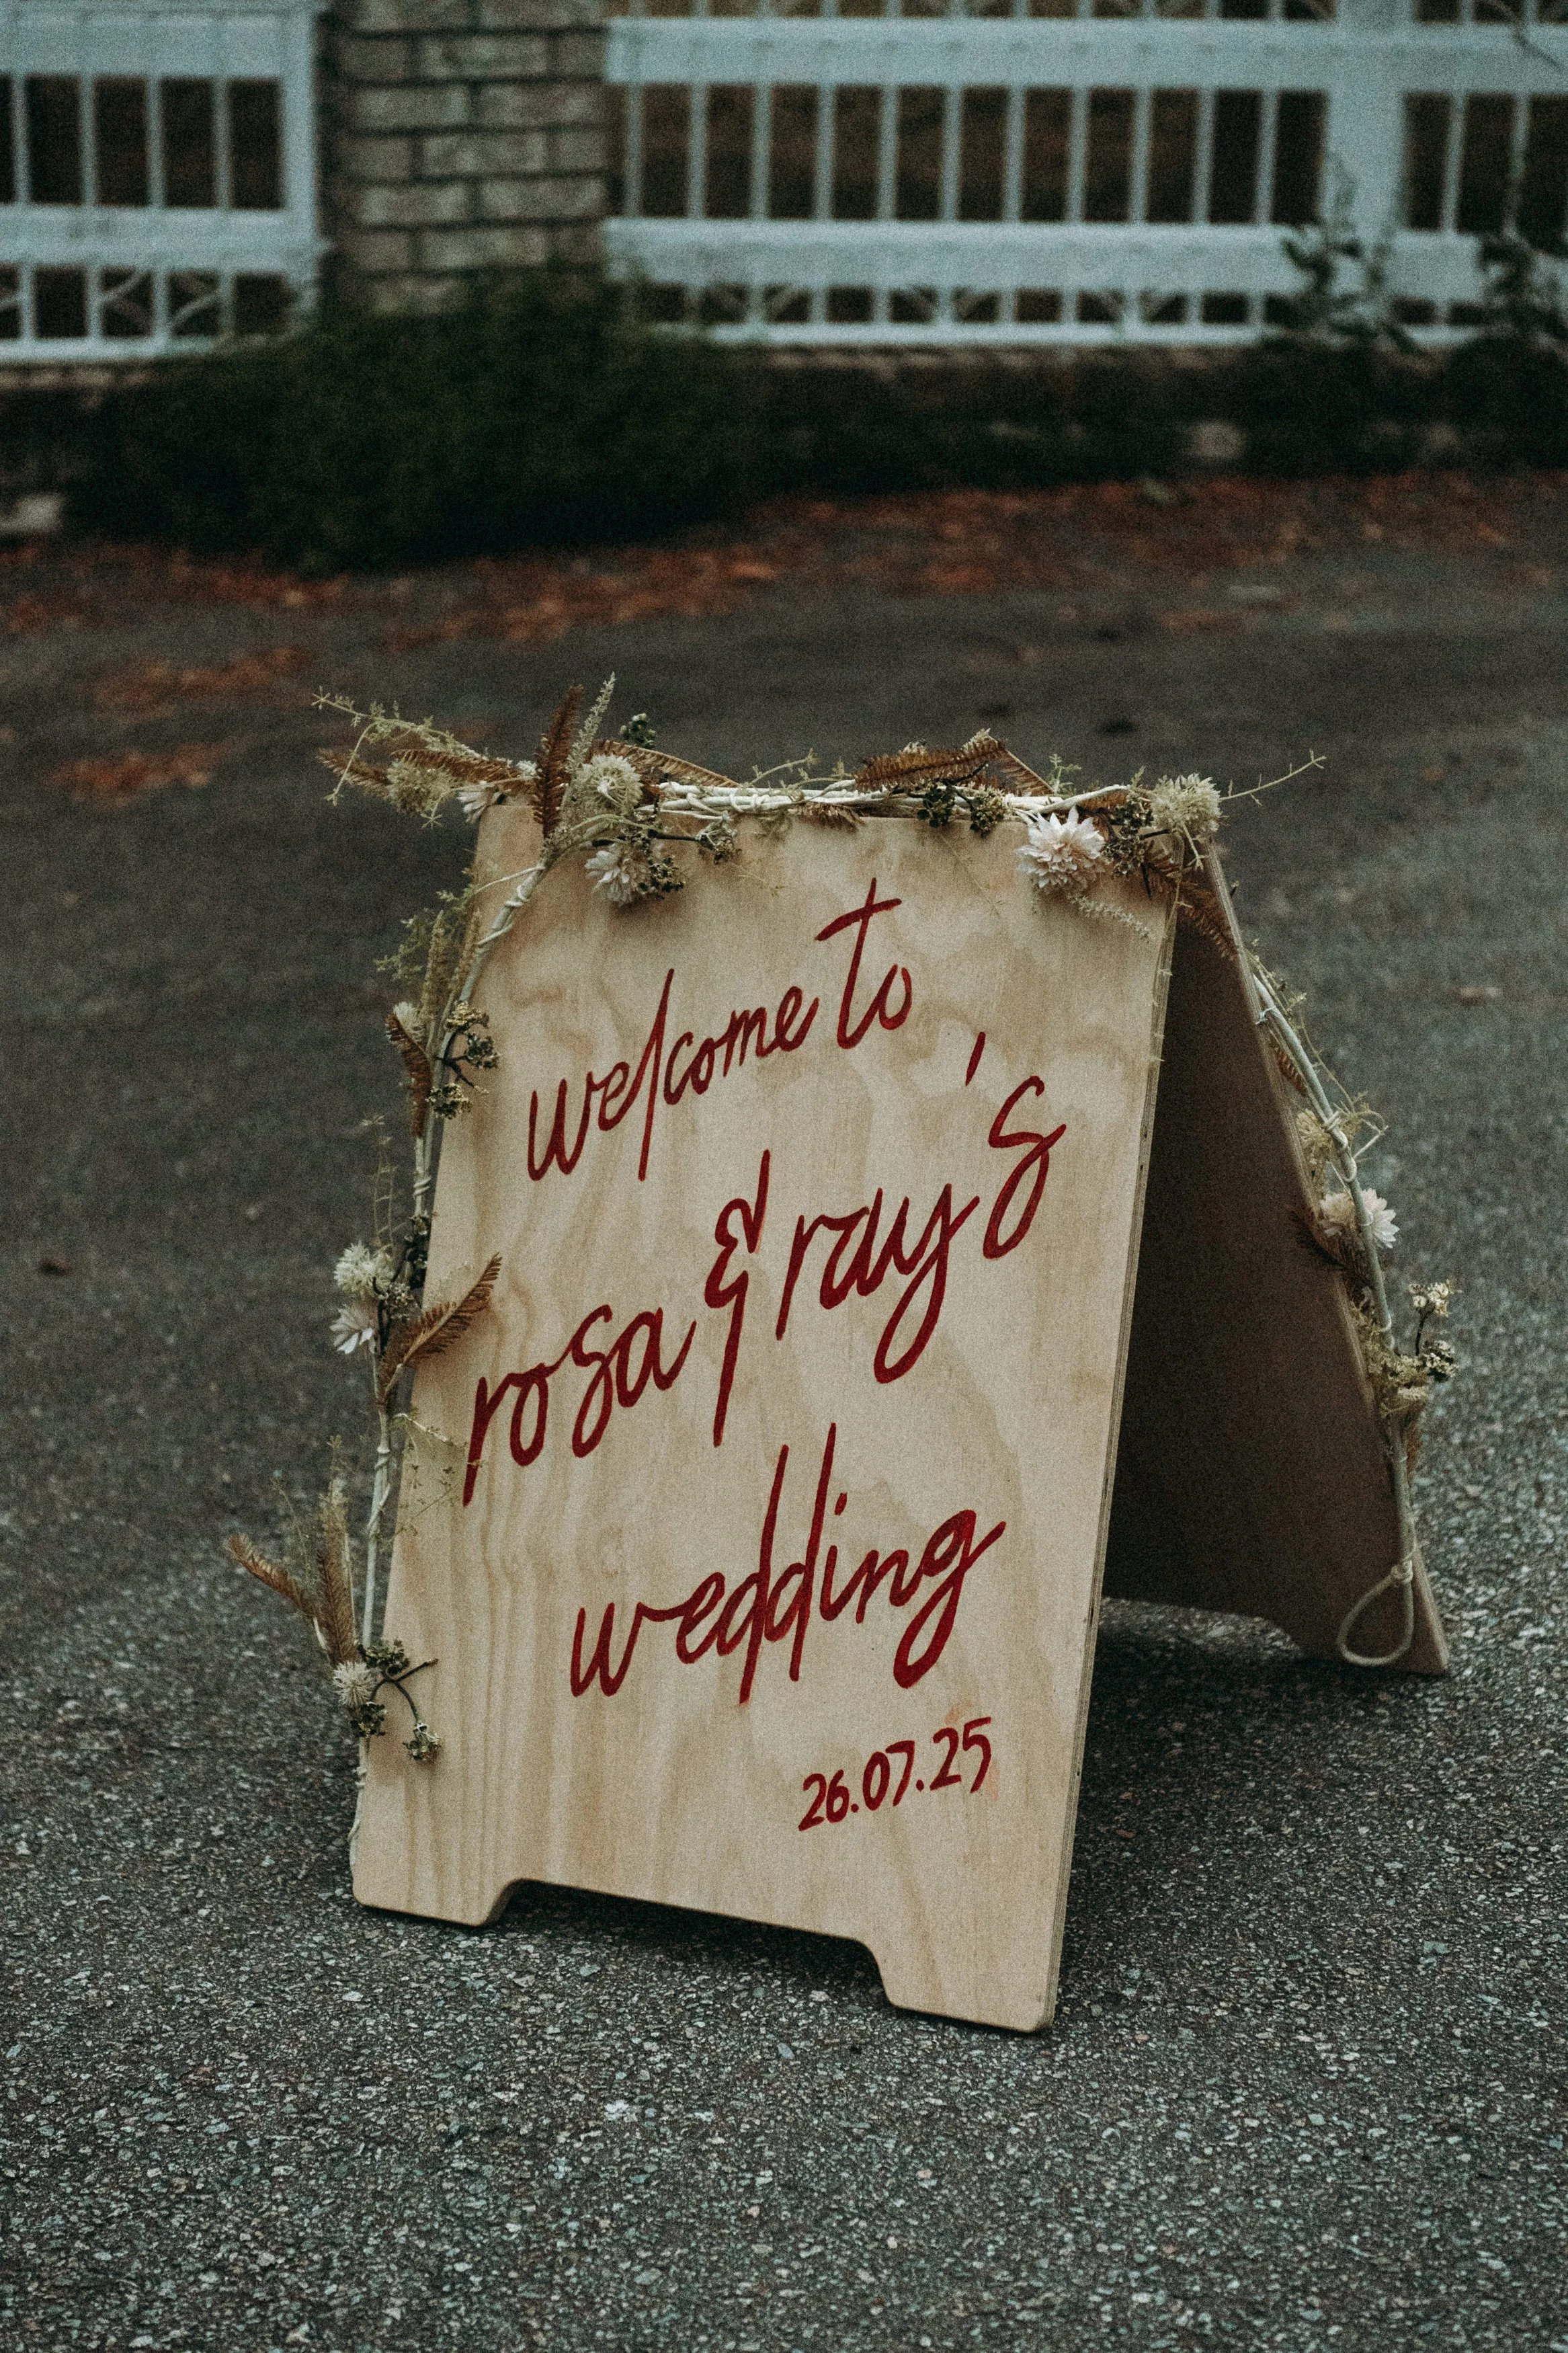 welcome to
rosa & ray's
wedding
26.07.25